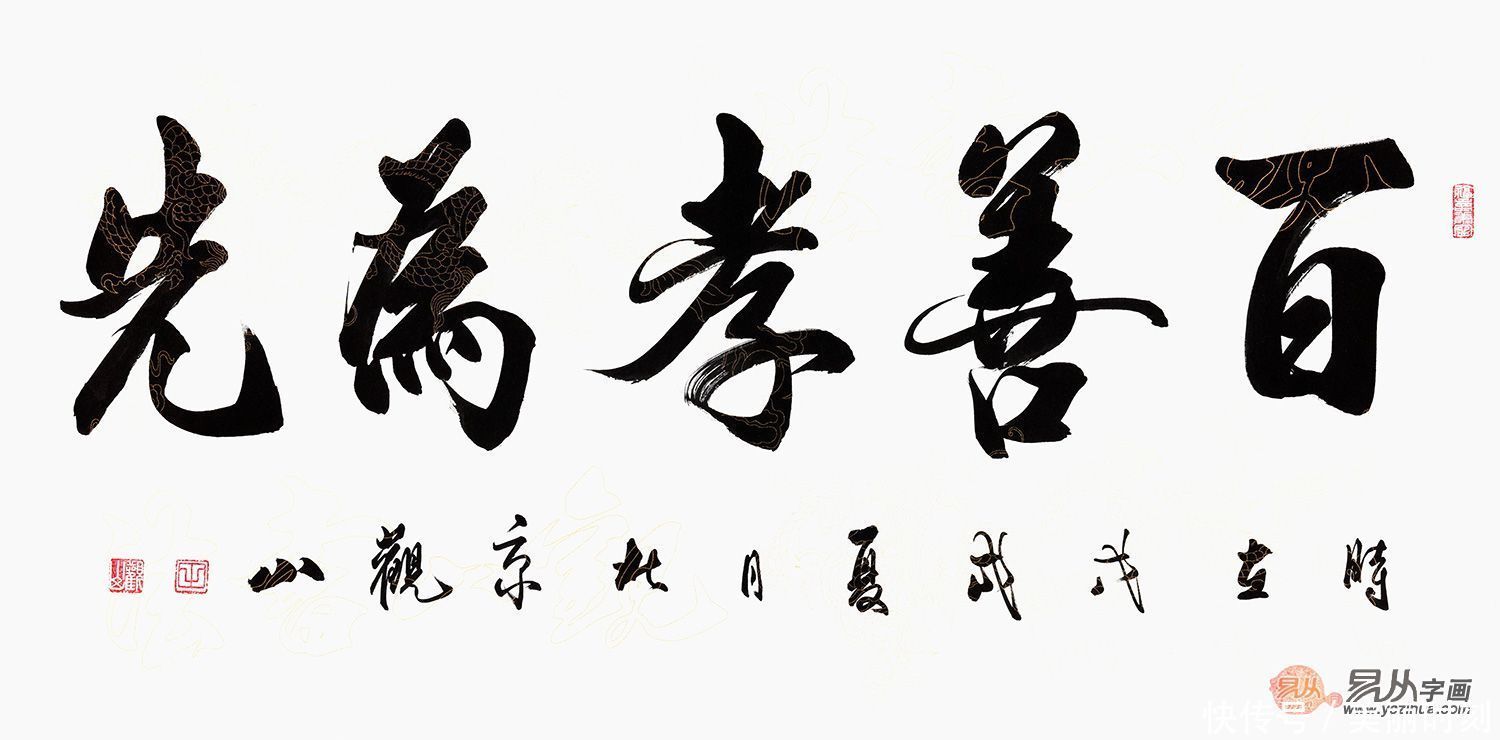 百善孝為先
時在戊戌夏月北京觀山
易从字画
www.yczihua.com
快传号 / 美丽时刻